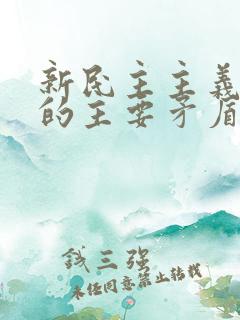 新民主主義
的主要矛盾
錢三强
未经同意禁止转载